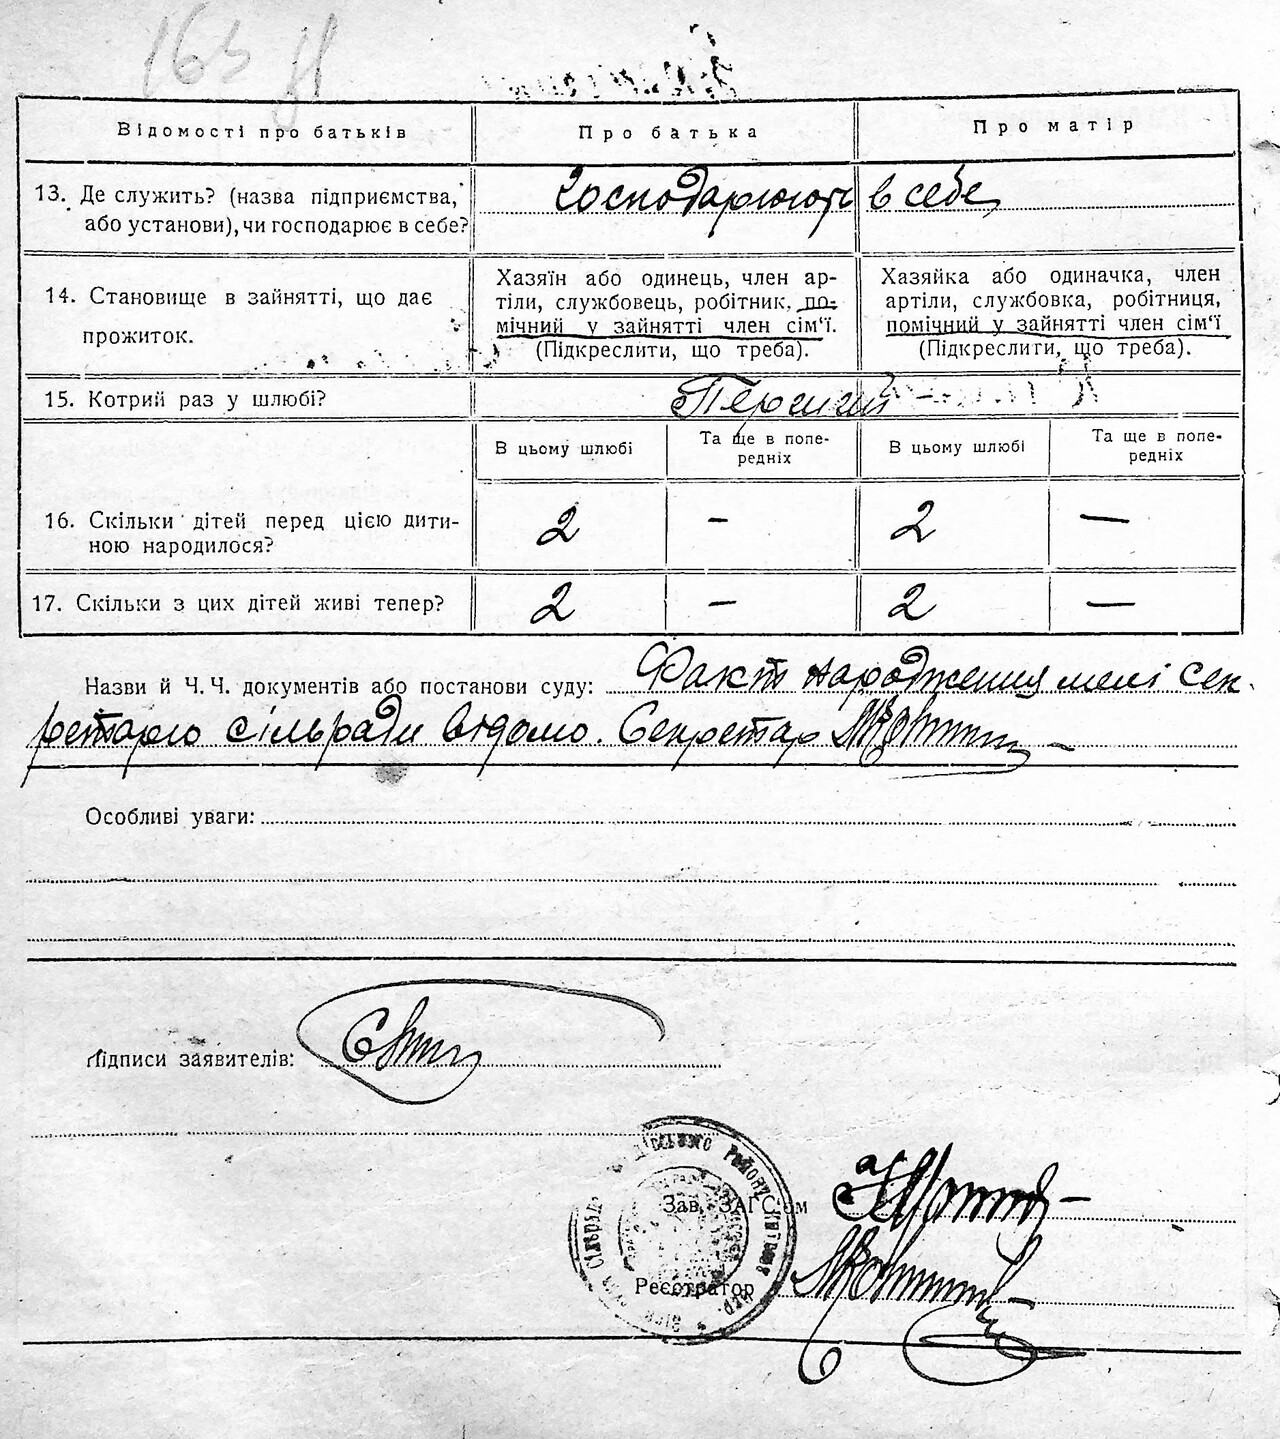 163
Відомості про батьків
Про батька
Про матір
13. Де служить? (назва підприємства,
або установи), чи господарює в себе?
Господарюють в себе
14. Становище в зайнятті, що дає
прожиток.
Хазяїн або одинець, член ар-
тіли, службовець, робітник, по-
мічний у зайнятті член сім'ї.
(Підкреслити, що треба).
Хазяйка або одиначка, член
артіли, службовка, робітниця,
помічний у зайнятті член сім'ї
(Підкреслити, що треба).
15. Котрий раз у шлюбі?
Перший
В цьому шлюбі
Та ще в попе-
редніх
В цьому шлюбі
Та ще в попе-
редніх
16. Скільки дітей перед цією дити-
ною народилося?
2 – 2 –
17. Скільки з цих дітей живі тепер?
2 – 2 –
Назви й Ч. Ч. документів або постанови суду: Факт народження мені сек-
ретарю сільради відомо. Секретар
Особливі уваги:
Підписи заявителів:
Району
Зав. ЗАГС'ом
Реєстратор